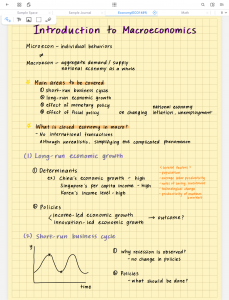 Introduction to Macroeconomics
Microecon - individual behaviors
Macroecon - aggregate demand / supply
national economy as a whole
Main areas to be covered
① short-run business cycle
② long-run economic growth
③ effect of monetary policy
④ effect of fiscal policy on changing national economy
inflation, unemployment
What is closed economy in macro?
- No international transactions
Although unrealistic, simplifying the complicated phenomenon
(1) Long-run economic growth
① Determinants
ex) China's economic growth - high
Singapore's per capita income - high
Korea's income level - high
② Policies
income-led economic growth
innovation-led economic growth
→ outcome?
(2) Short-run business cycle
① Why recession is observed?
- no change in policies
② Policies
- what should be done?
time